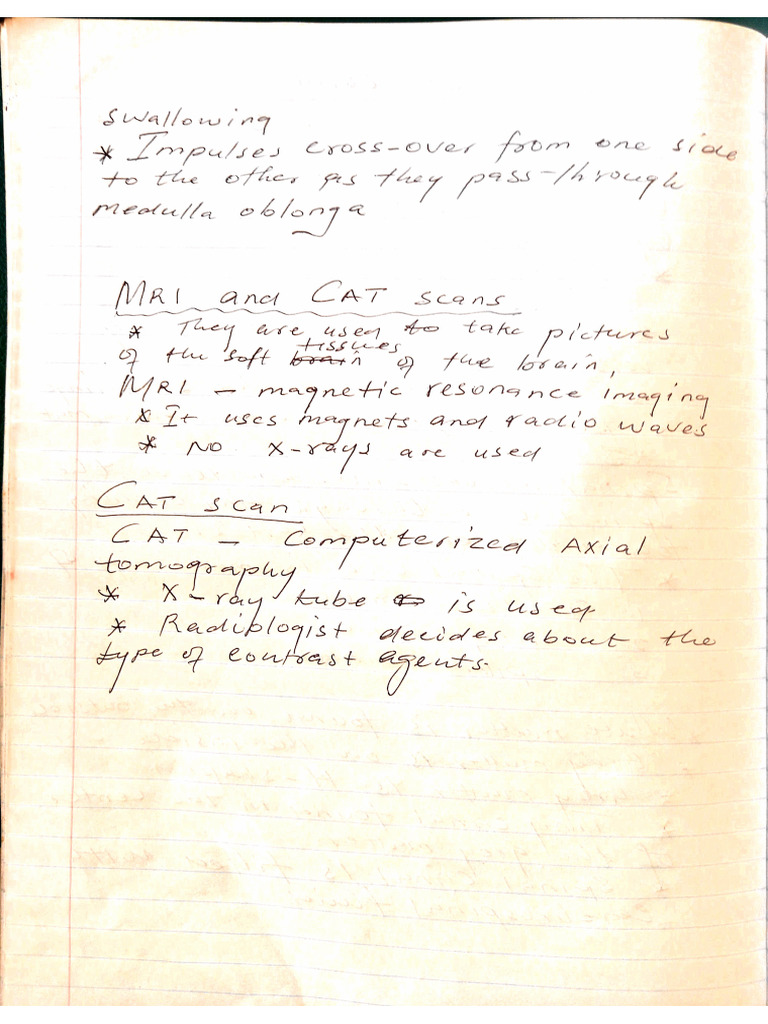 swallowing
* Impulses cross-over from one side
to the other as they pass through
medulla oblonga
MRI and CAT scans
* They are used to take pictures
of the soft tissues of the brain,
MRI - magnetic resonance imaging
* It uses magnets and radio waves
* No x-rays are used
CAT scan
CAT - Computerized Axial
tomography
* X-ray tube is used
* Radiologist decides about the
type of contrast agents.